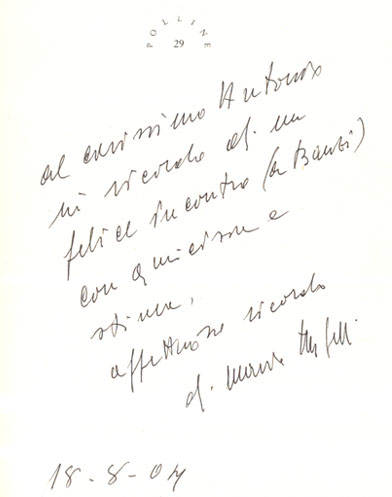 POLLINE
29
al carissimo Antonio
in ricordo di un
felice incontro (a Banzi)
con amicizia e
stima,
affettuoso ricordo
di
18-8-04